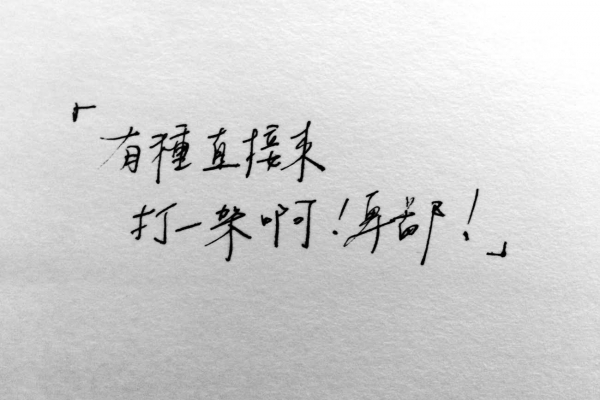 「有種直接來
打一架啊!卑鄙!」